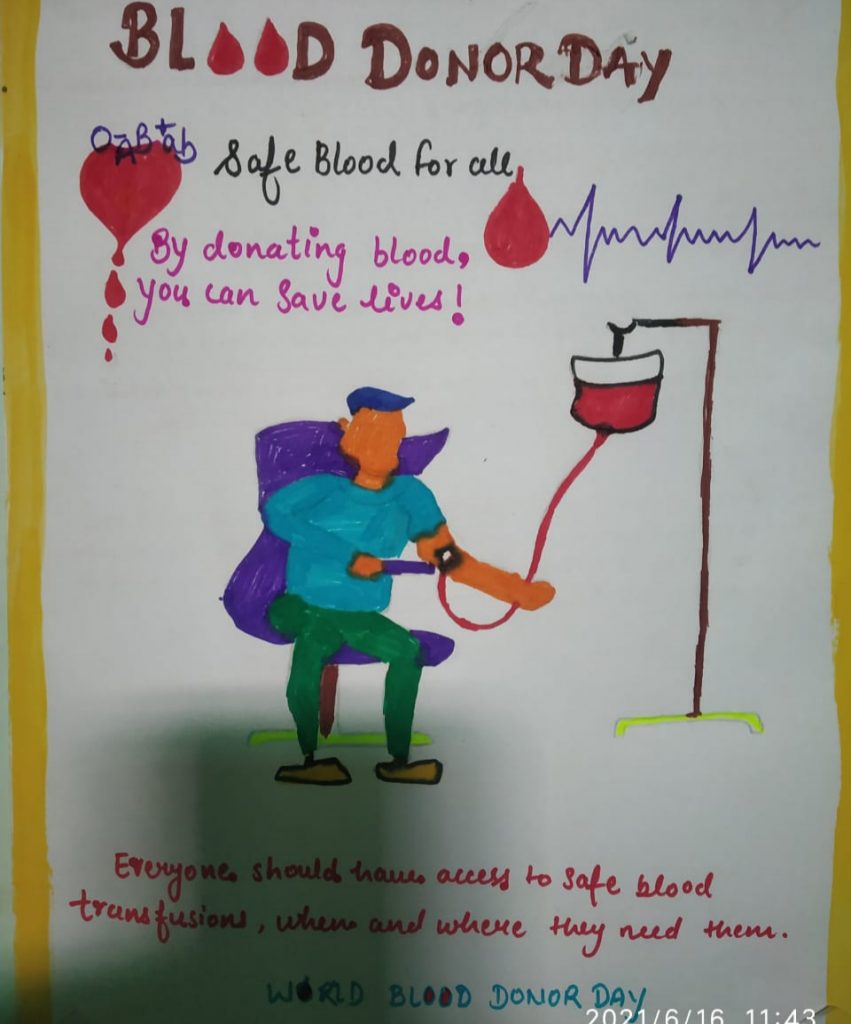 BLOOD DONOR DAY
O-AB+ab
Safe Blood for all
By donating blood,
you can save lives!
Everyone should have access to safe blood
transfusions, when and where they need them.
WORLD BLOOD DONOR DAY
2021/6/16 11:43